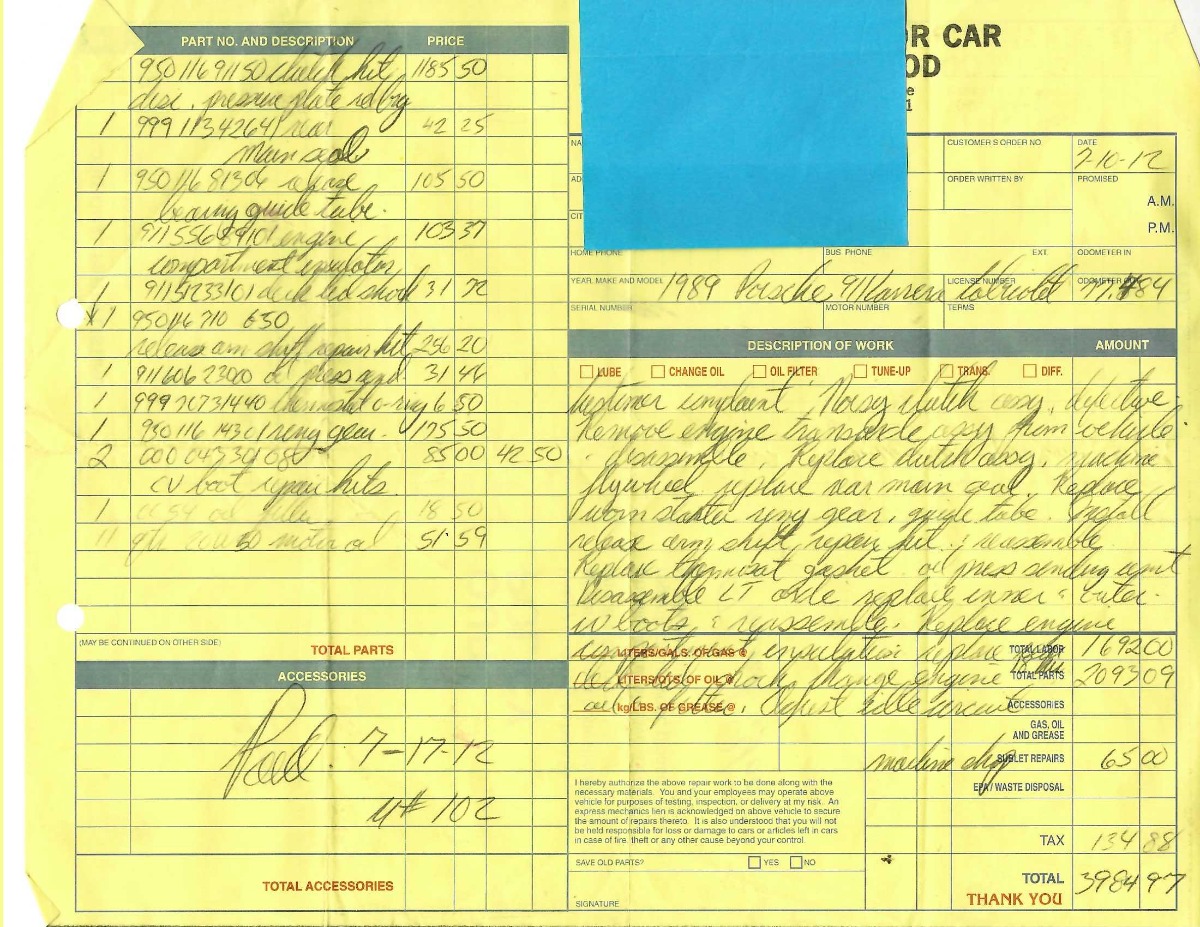 PART NO. AND DESCRIPTION PRICE
95011691150 clutch kit 1185 50
disc, pressure plate rel brg
1 99911342641 rear 42 25
main seal
1 95011681306 release 105 50
bearing guide tube.
1 91155689101 engine 103 37
compartment insulator
1 91151233101 deck lid shock 31 72
1 950116710 650
release arm shaft repair kit 256 20
1 91160623000 oil press send 31 46
1 99970731440 thermostat o-ring 6 50
1 930116143 ring gear. 175 50
2 85 00 42 50
CV boot repair kits.
1 oil filter 18 50
11 qts 20W50 motor oil 51 59
(MAY BE CONTINUED ON OTHER SIDE)
TOTAL PARTS
ACCESSORIES
Paid 7-17-12
# 102
TOTAL ACCESSORIES
R CAR
OD
e
1
NA
AD
CIT
CUSTOMER'S ORDER NO.
DATE
7-10-12
ORDER WRITTEN BY
PROMISED
A.M.
P.M.
HOME PHONE BUS. PHONE EXT. ODOMETER IN
YEAR, MAKE AND MODEL 1989 Porsche 911 Carrera Cabriolet LICENSE NUMBER ODOMETER OUT
SERIAL NUMBER MOTOR NUMBER TERMS
DESCRIPTION OF WORK AMOUNT
LUBE CHANGE OIL OIL FILTER TUNE-UP TRANS. DIFF.
Customer complaint Noisy clutch assy. defective.
Remove engine transaxle assy from vehicle
disassemble. Replace clutch assy, machine
flywheel, replace rear main seal. Replace
worn starter ring gear, guide tube. Install
release arm shaft, repair kit & reassemble
Replace thermostat gasket oil press sending unit
Disassemble LT axle replace inner & outer
cv boots & reassemble. Replace engine
compartment insulation replace
deck lid shock, change engine
oil & filter. Adjust idle circuit
LITERS/GALS. OF GAS @
LITERS/QTS. OF OIL @
kg/LBS. OF GREASE @
TOTAL LABOR 1692 00
TOTAL PARTS 2093 09
ACCESSORIES
GAS, OIL
AND GREASE
machine shop SUBLET REPAIRS 65 00
EPA / WASTE DISPOSAL
I hereby authorize the above repair work to be done along with the
necessary materials. You and your employees may operate above
vehicle for purposes of testing, inspection, or delivery at my risk. An
express mechanics lien is acknowledged on above vehicle to secure
the amount of repairs thereto. It is also understood that you will not
be held responsible for loss or damage to cars or articles left in cars
in case of fire, theft or any other cause beyond your control.
TAX 134 88
SAVE OLD PARTS? YES NO
TOTAL 3984 97
THANK YOU
SIGNATURE